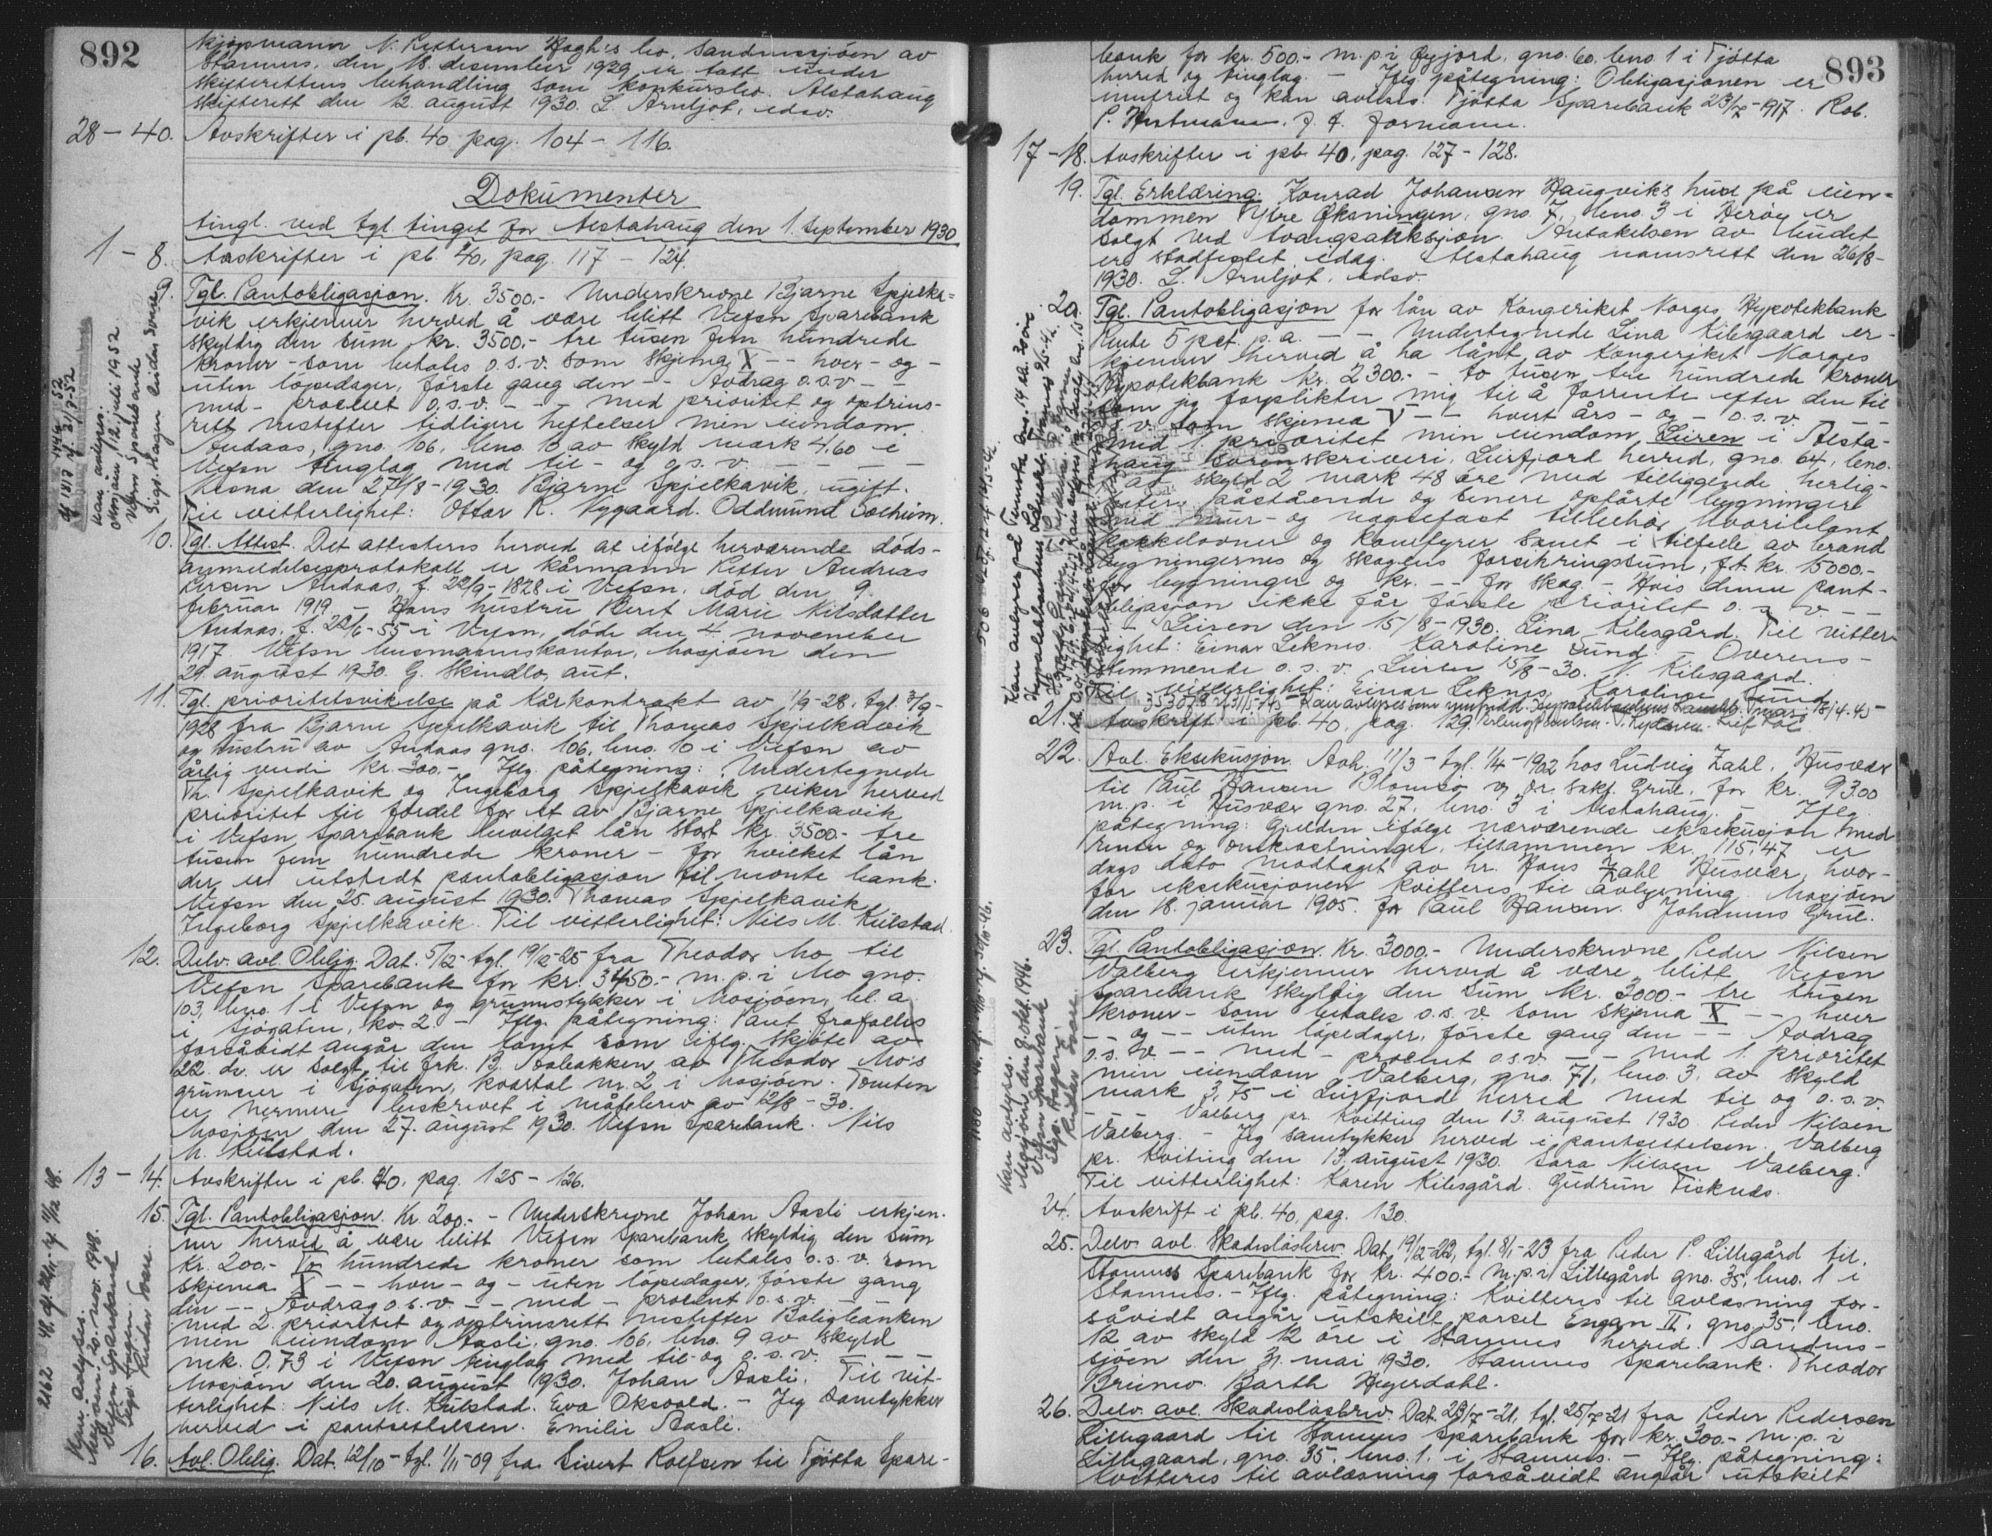 892
kjøpmann N. Pettersen Hagh's bo, Sandnessjöen av
Stamnes, den 18. desember 1929 er tatt under
skifterettens behandling som konkursbo. Alstahaug
skifterett den 12 august 1930. L. Arnljot, edsv.
28-40. Avskrifter i pb. 40 pag. 104 - 116.
Dokumenter
tingl. ved tgl. tinget for Alstahaug den 1. september 1930
1 - 8. Avskrifter i pb. 40, pag. 117 - 124.
9. Tgl. Pantobligasjon. Kr. 3500.- Underskrivne Bjarne Spjelka=
vik erkjenner herved å være blitt Vefsn Sparebank
skyldig den sum kr. 3500.- tre tusen fem hundrede
kroner - som betales o.s.v. som skjema X -- hver - og -
uten löpedager, förste gang den -- Avdrag o.s.v - -
med - procent o.s.v. - - - med prioritet og optrins-
rett nestefter tidligere heftelser min eiendom
Andaas, gno. 106, bno. 10 av skyld mark 4,60 i
Vefsn tinglag med til- og o.s.v. - - - -
Nesna den 27/8-1930. Bjarne Spjelkavik, ugift.
Til vitterlighet: Ottar K. Nygaard. Oddmund Solheim.
10. Tgl. Attest. Det attesteres herved at ifölge herværende döds-
anmeldelsesprotokoll er kårmann Petter Andreas
Larsen Andaas, f. 22/9-1828 i Vefsn, död den 9.
februar 1919. - Hans hustru Beret Marie Nilsdatter
Andaas, f. 22/6-55 i Vefsn, döde den 4. november
1917. Vefsn lensmannskontor, Mosjöen den
29 august 1930. G. Skindlo, aut.
11. Tgl. prioritetsvikelse på Kårkontrakt av 1/9-28, tgl. 3/9-
1928 fra Bjarne Spjelkavik til Thomas Spjelkavik
og hustru av Andaas gno. 106, bno. 10 i Vefsn av
årlig verdi kr. 300.- Iflg. påtegning: Undertegnede
Th. Spjelkavik og Ingeborg Spjelkavik viker herved
prioritet til fordel for et av Bjarne Spjelkavik
i Vefsn Sparebank bevilget lån stort kr. 3500.- tre
tusen fem hundrede kroner - for hvilket lån
der er utstedt pantobligasjon til nevnte bank.
Vefsn den 25. august 1930. Thomas Spjelkavik
Ingeborg Spjelkavik. Til vitterlighet: Nils M. Kulstad.
12. Delv. avl. Oblig. Dat. 5/12- tgl. 19/12-25 fra Theodor Mo til
Vefsn Sparebank for kr. 3450.- m.p. i Mo gno.
103, bno. 1 i Vefsn og grunnstykker i Mosjöen, bl.a.
i Sjögaten, kv. 2 - Iflg. påtegning: Pant frafalles
forsåvidt angår den tomt som iflg. skjöte av
22 ds. er solgt til frk. B. Aalbakken av Theodor Mo's
grunner i Sjögaten, kvartal nr. 2 i Mosjöen. Tomten
er nermere beskrevet i målebrev av 12/8-30.
Mosjöen den 27. august 1930. Vefsn Sparebank. Nils
M. Kulstad.
13 - 14. Avskrifter i pb. 40, pag. 125 - 126.
15. Tgl. Pantobligasjon. Kr. 200.- - Underskrivne Johan Aasli erkjen-
ner herved å være blitt Vefsn Sparebank skyldig den sum
Kr. 200.- To hundrede kroner som betales o.s.v. som
skjema X - - hver - og - uten löpedager, förste gang
den - - Avdrag o.s.v. - - med - procent o.s.v. -
med 2. prioritet og optrinsrett nestefter Boligbanken
min eiendom Aasli, gno. 106, bno. 9 av skyld
mk. 0.73 i Vefsn tinglag med til- og o.s.v. - -
Mosjöen den 20. august 1930. Johan Aasli. Til vit-
terlighet: Nils M. Kulstad. Eva Oksvold. - Jeg samtykker
herved i pantsettelsen. Emilie Aasli.
16. Avl. Oblig. Dat. 12/10- tgl. 1/11-09 fra Sivert Rolfsen til Tjötta Spare-
Kan avlyses.
Mosjöen, 12. juli 1952
Vefsn Sparebank
Kan avlyses.
Mosjøen 20. nov. 1948.
Vefsn Sparebank
893
bank for kr. 500.- m.p. i Øyjord, gno. 60, bno. 1 i Tjötta
herred og tinglag. - Iflg. påtegning: Obligasjonen er
innfriet og kan avlöses. Tjötta Sparebank 23/7-1917. Rob.
P. Hertmann. J. A. Jormann.
17 - 18. Avskrifter i pb. 40, pag. 127 - 128.
19. Tgl. Erklæring. Konrad Johansen Haugviks bud på eien=
dommen Ytre Øksningen, gno. 7, bno. 3 i Heröy er
solgt ved tvangsauksjon. Antakelsen av budet
er stadfestet idag. Alstahaug namsrett den 26/8-
1930. L. Arnljot, edsv.
20. Tgl. Pantobligasjon for lån av Kongeriket Norges Hypotekbank
Rente 5 pct. p.a. - - Undertegnede Lina Kilsgaard er-
kjenner herved å ha lånt av Kongeriket Norges
Hypotekbank kr. 2300.- to tusen tre hundrede kroner
som jeg forplikter mig til å forrente efter den til
o.s.v. som skjema V - - hvert års - og - o.s.v. -
med 1. prioritet min eiendom Leiren i Alsta-
haug Sorenskriveri, Leirfjord herred, gno. 64, bno.
av skyld 2 mark 48 öre med tilliggende herlig-
heter, påstående og senere opförte bygninger
med mur- og naglefast tilbehør hvoriblant
kakkelovner og komfyrer samt i tilfelle av brand
bygningernes og skogens forsikringssum, f.t. kr. 15000.-
for bygninger og kr. - - for skog - Hvis denne pant-
obligasjon ikke får förste prioritet o. s. v. - -
- Leiren den 15/8-930. Lina Kilsgård. Til vitter-
lighet: Einar Leknes. Karoline Sund - Overens-
stemmende o.s.v. Leiren 15/8-30. N. Kilsgaard.
Til vitterlighet: Einar Leknes. Karoline Sund
21. Avskrift i pb. 40, pag. 129.
22. Avl. Eksekusjon. Avh. 11/3- tgl. 1/4-1902 hos Ludvig Zahl, Husvær
til Paul Hansen Blomsö v/ Or. sakf. Grue, for kr. 93.00
m.p. i Husvær gno. 27, bno. 3 i Alstahaug. - Iflg.
påtegning: Gjelden ifölge nærværende eksekusjon med
renter og omkostninger, tilsammen kr. 115,47 er
dags dato modtaget av hr. Hans Zahl Husvær, hvor-
for eksekusjonen kvitteres til avlysning. Mosjöen
den 18. januar 1905. for Paul Hansen. Johannes Grue.
23. Tgl. Pantobligasjon. Kr. 3000.- Underskrivne Peder Nilsen
Valberg erkjenner herved å være blitt Vefsn
Sparebank skyldig den sum kr. 3000.- tre tusen
kroner - som betales o.s.v. som skjema X - - hver
- - og - - uten löpedager, förste gang den - - Avdrag
o.s.v. - - med - procent o.s.v. - - med 1. prioritet
min eiendom Valberg, gno. 71, bno. 3, av skyld
mark 3,75 i Leirfjord herred med til og o.s.v.
- - - Valberg pr. Kvitting den 13. august 1930. Peder Nilsen
Valberg. - Jeg samtykker herved i pantsettelsen. Valberg
pr. Kviting den 13. august 1930. Sara Nilsen Valberg.
Til vitterlighet: Karen Kilsgård. Gudrun Fisknes.
24. Avskrift i pb. 40, pag. 130.
25. Delv. avl. Skadeslösbrev. Dat. 19/12-22, tgl. 8/1-23 fra Peder P. Lillegård til
Stamnes Sparebank for kr. 400.- m.p. i Lillegård gno. 35, bno. 1 i
Stamnes. - Iflg. påtegning: Kvitteres til avlesning for-
såvidt angår utskilt parsel Engan II, gno. 35, bno.
12 av skyld 12 öre i Stamnes herred. Sandnes-
sjöen den 31. mai 1930. Stamnes Sparebank. Theodor
Breimo. Barth Heyerdahl.
26. Delv. avl. Skadeslösbrev. Dat. 23/7-21, tgl. 25/7-21 fra Peder Pedersen
Lillegaard til Stamnes Sparebank for kr. 300.- m.p. i
Lillegaard, gno. 35, bno. 1, i Stamnes. - Iflg. påtegning:
kvitteres til avlesning forsåvidt angår utskilt
Kan avlyses.
Mosjøen den 9. okt. 1946.
Vefsn Sparebank